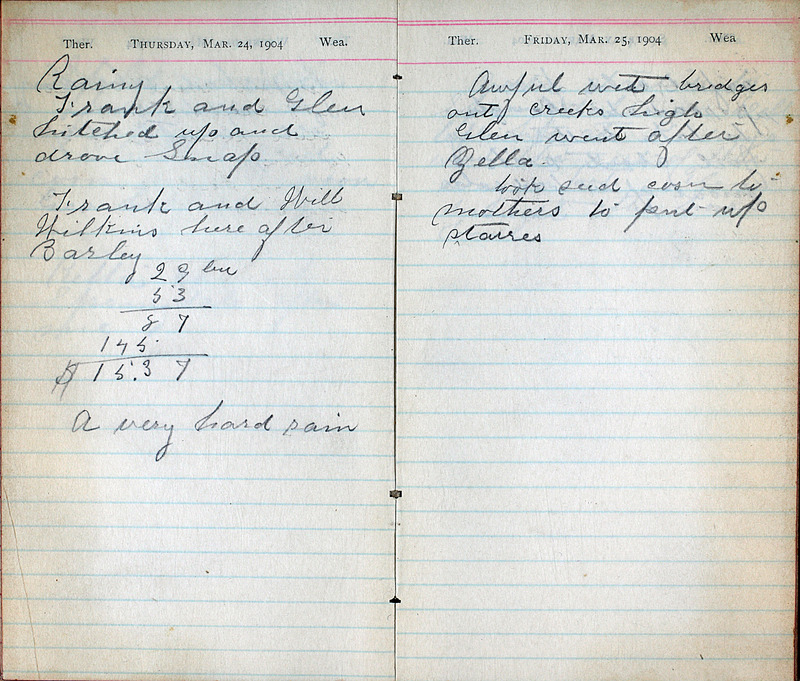 Ther. THURSDAY, MAR. 24, 1904 Wea.
Rainy
Frank and Glen
hitched up and
drove Snap
Frank and Will
Wilkins here after
Barley
29 bu
53
87
145
$15.37
A very hard rain
Ther. FRIDAY, MAR. 25, 1904 Wea
Awful wet bridges
out creeks high
Glen went after
Zella.
took seed corn to
mothers to put up
staires